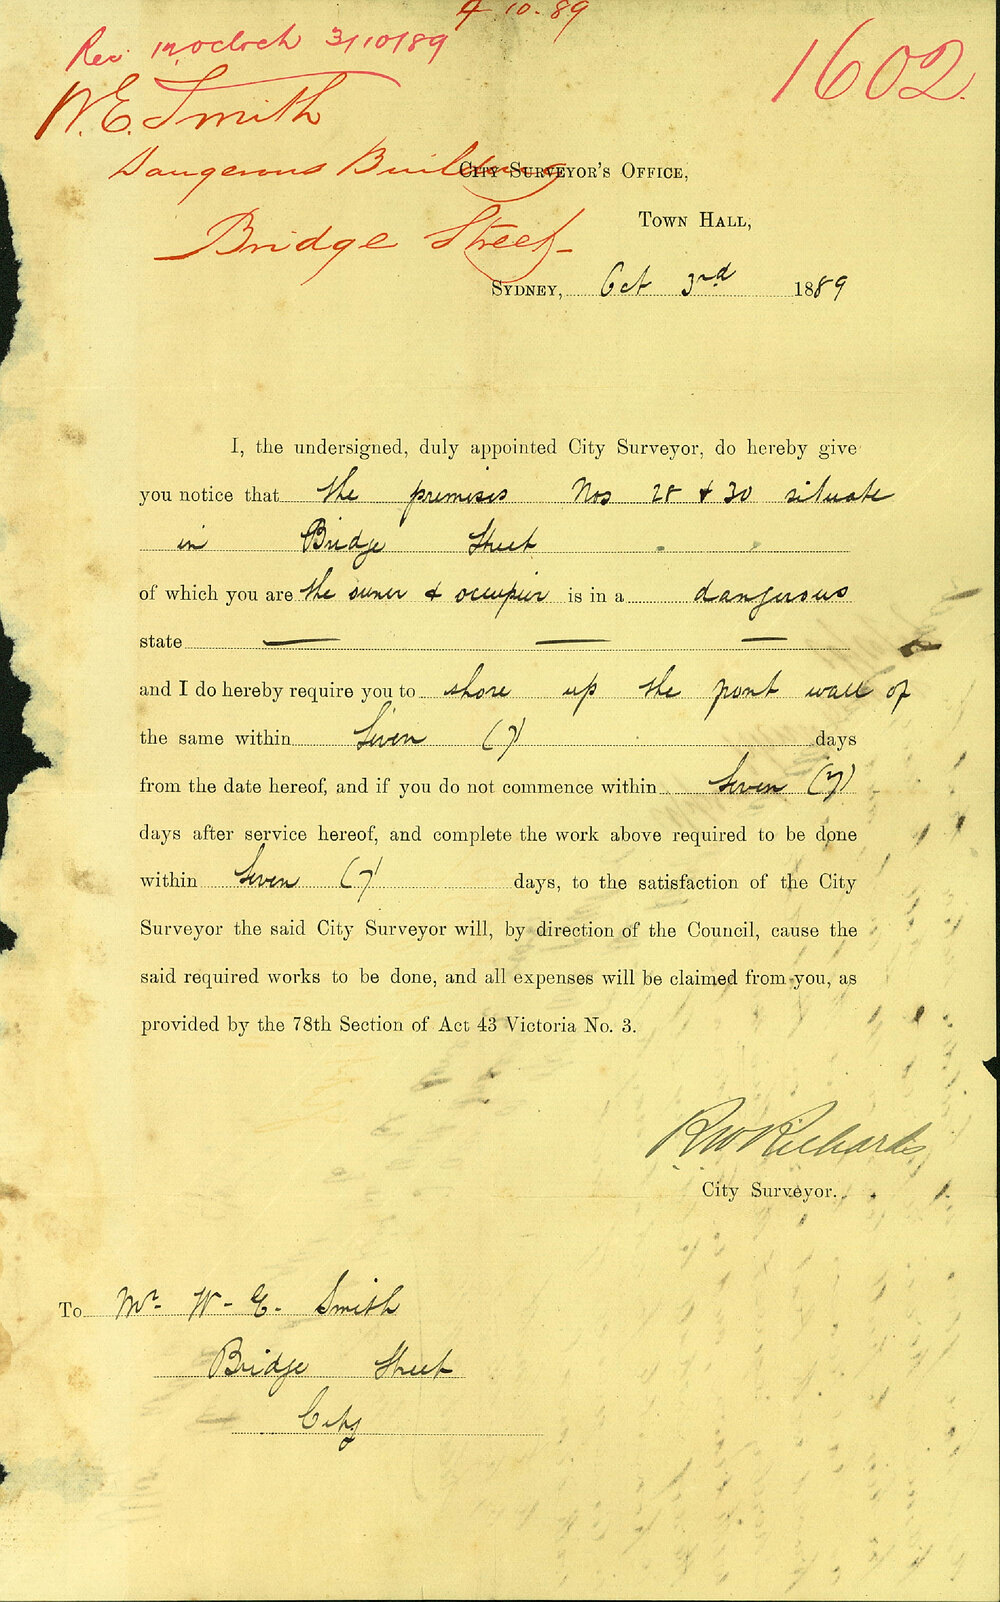 4 10. 89
Rec 12 oclock 3/10/89
1602
W. E. Smith
Dangerous Building
Bridge Street
City Surveyor's Office,
Town Hall,
Sydney, Oct 3rd 1889
I, the undersigned, duly appointed City Surveyor, do hereby give
you notice that the premises Nos 28 & 30 situate
in Bridge Street
of which you are the owner & occupier is in a dangerous
state
and I do hereby require you to shore up the front wall of
the same within Seven (7) days
from the date hereof, and if you do not commence within Seven (7)
days after service hereof, and complete the work above required to be done
within Seven (7) days, to the satisfaction of the City
Surveyor the said City Surveyor will, by direction of the Council, cause the
said required works to be done, and all expenses will be claimed from you, as
provided by the 78th Section of Act 43 Victoria No. 3.
RW Richards
City Surveyor.
To Mr. W. E. Smith
Bridge Street
City